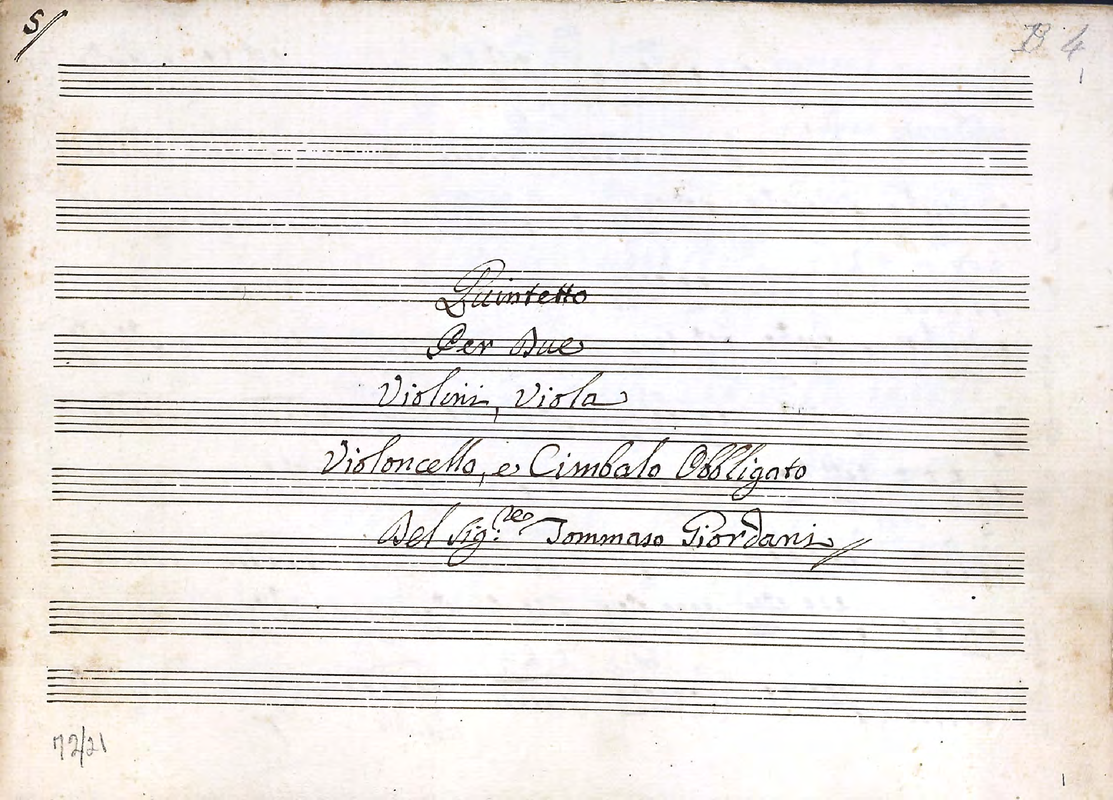 5/
B 4
1
Quintetto
Per Due
Violini, Viola
Violoncello, e Cimbalo Obbligato
Del Sig:re Tommaso Giordani
72/21
1